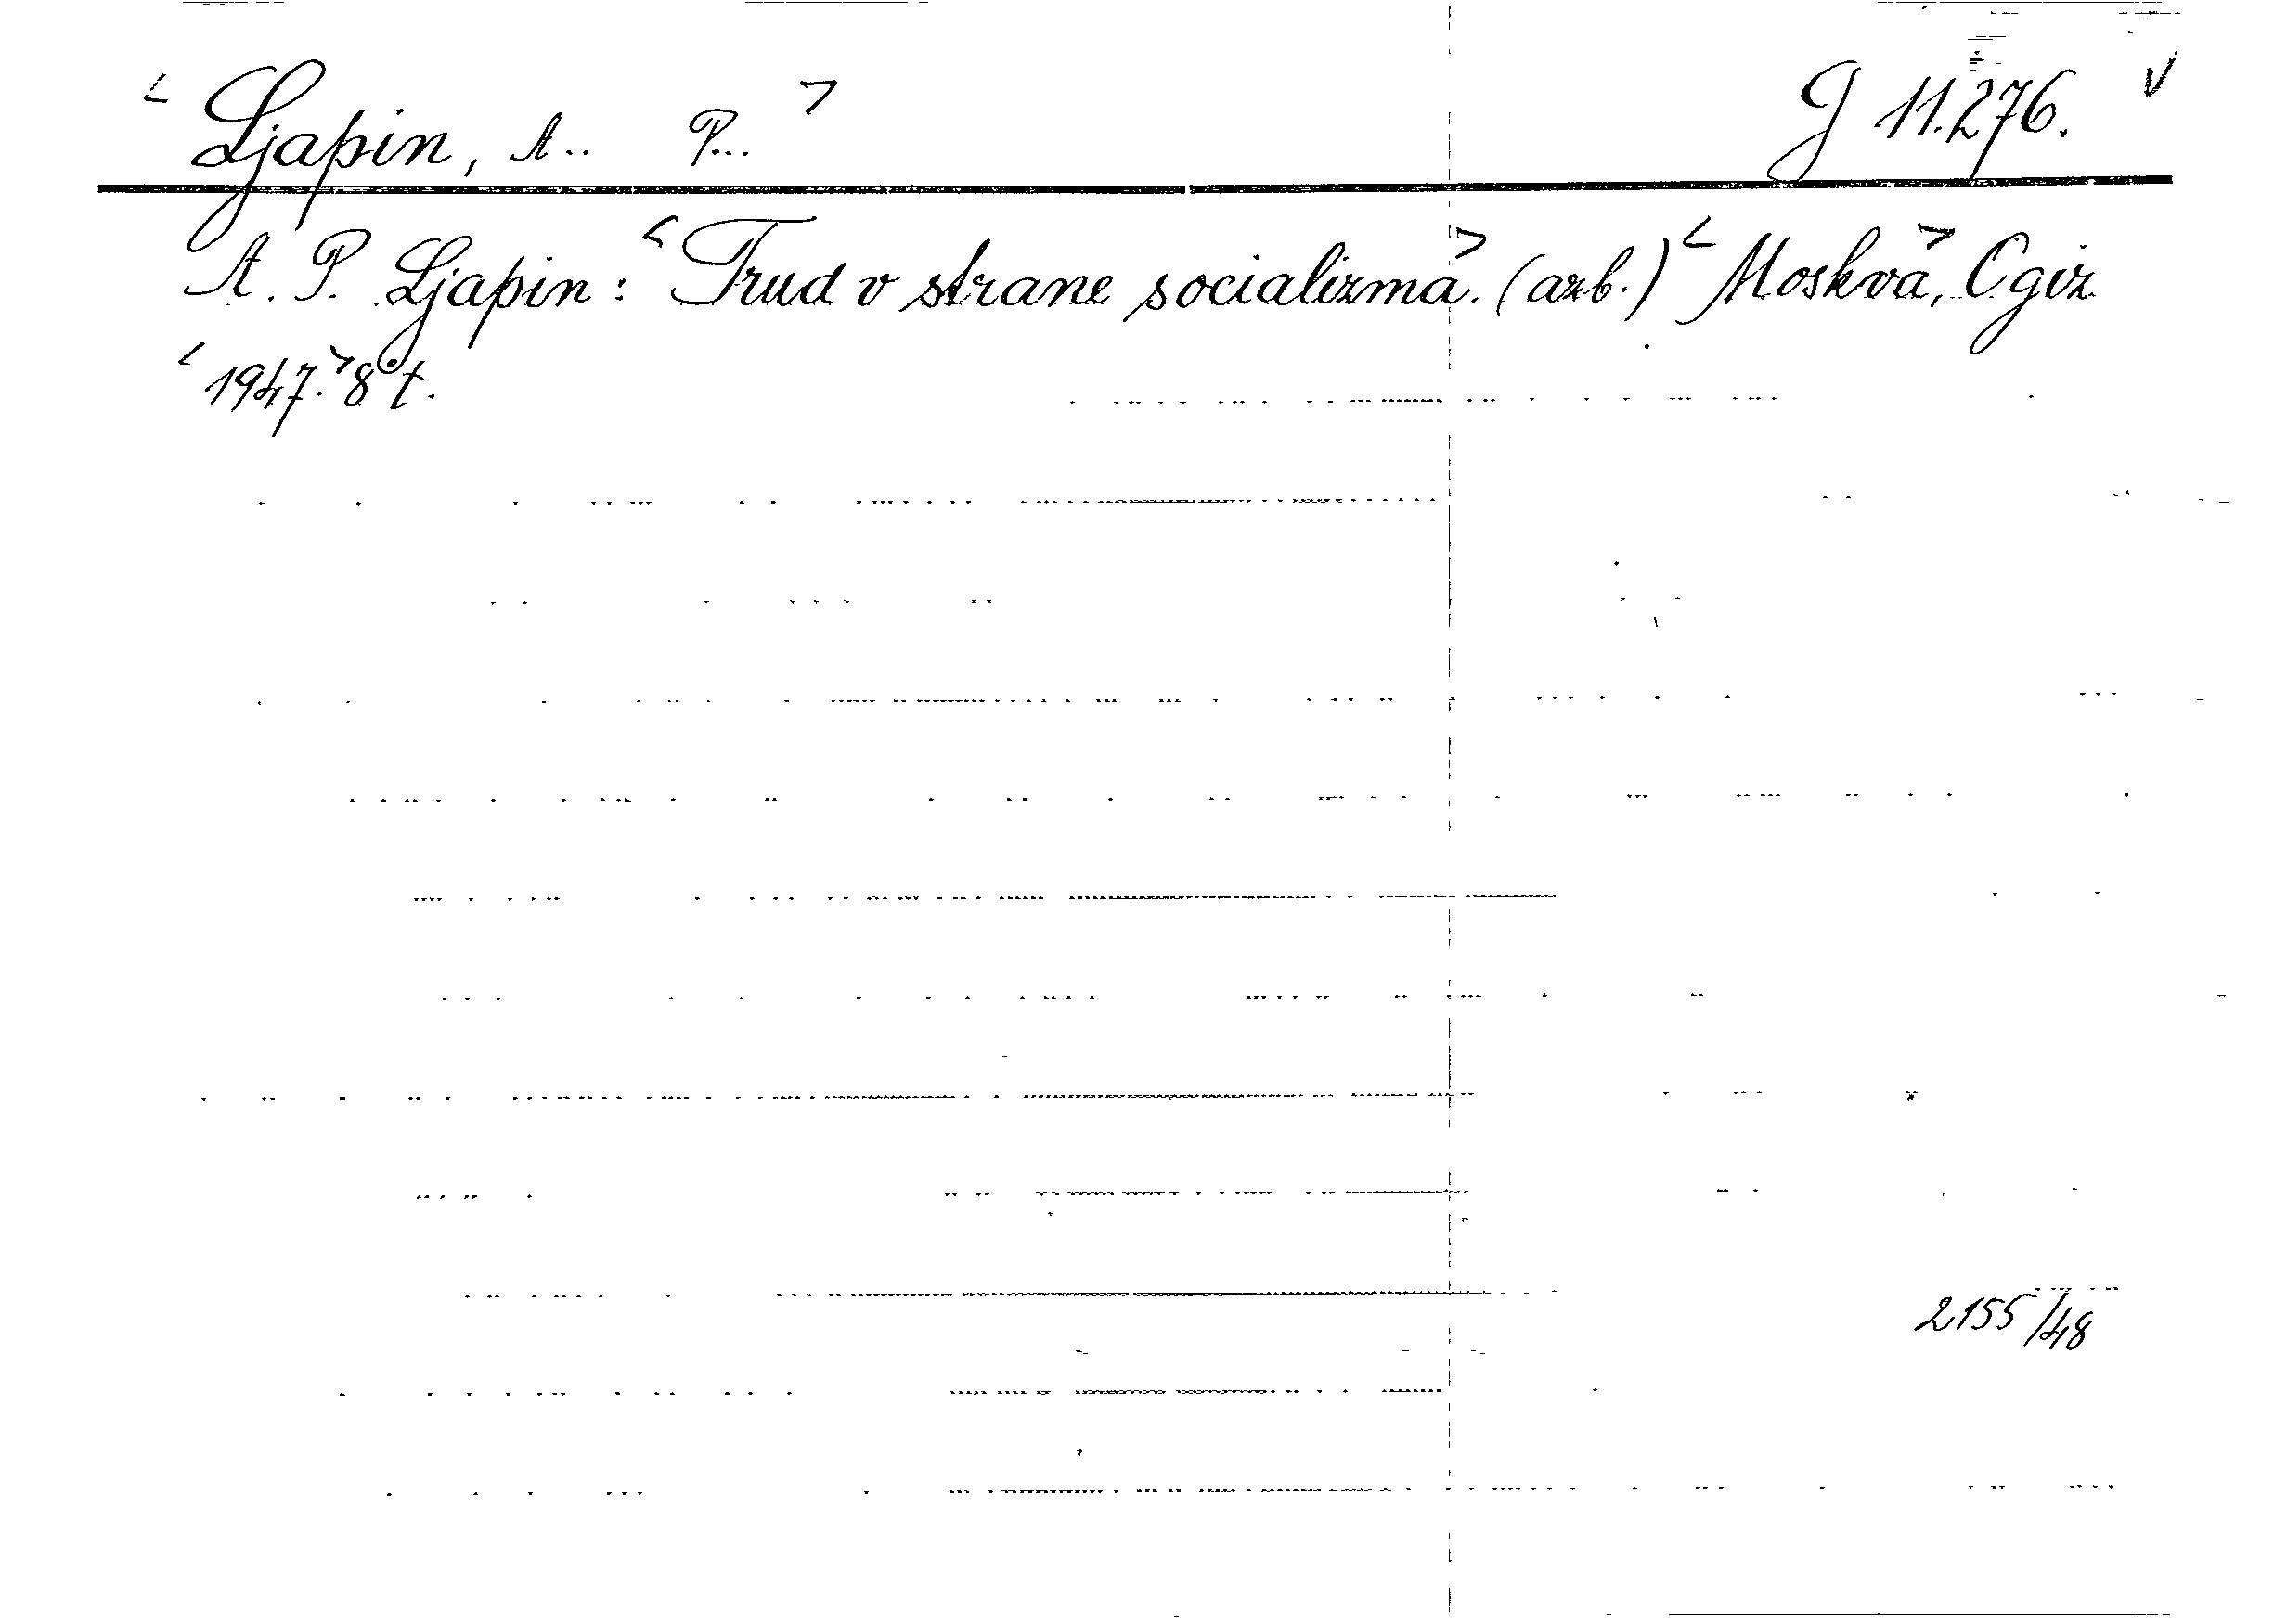 < Ljapin, A.. P... > J 11.276. √
A. P. Ljapin: <Trud v strane socializma.> (azb.) <Moskva>, Ogiz
<1947.> 8° t.
2155/48